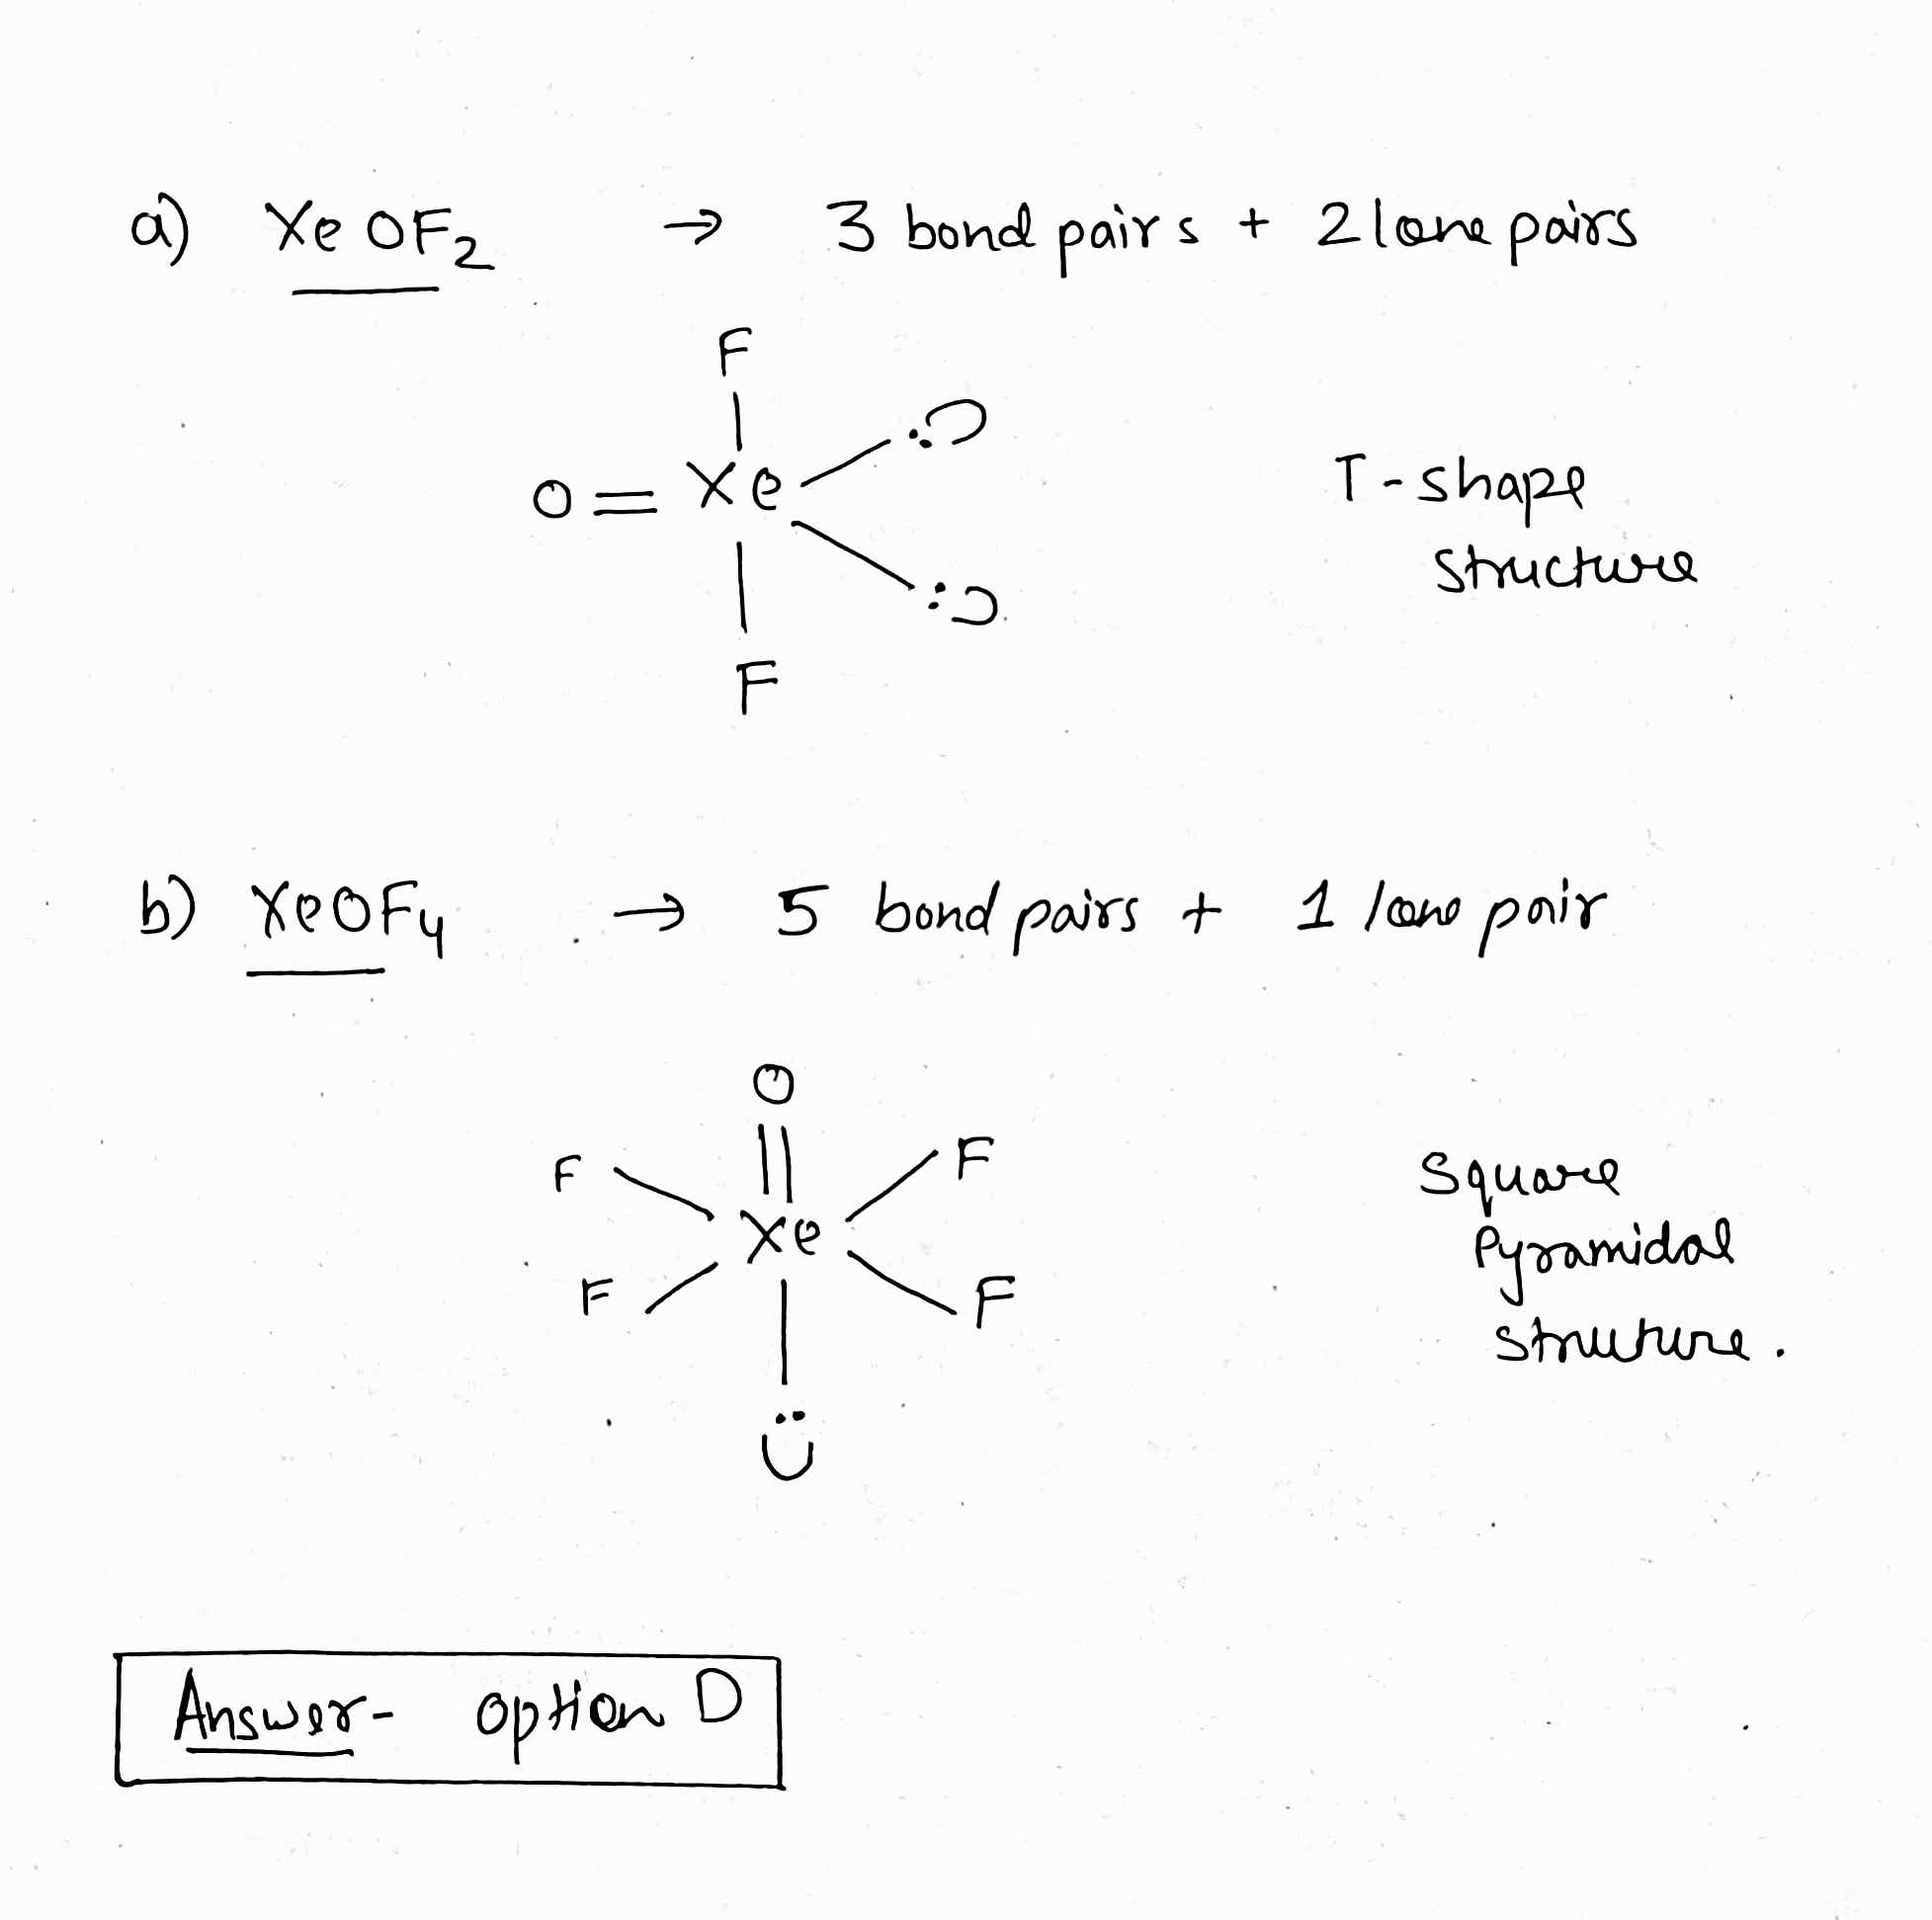 a) XeOF2 → 3 bond pairs + 2 lone pairs
F
O = Xe
F
T-shape
structure
b) XeOF4 → 5 bond pairs + 1 lone pair
O
F F
Xe
F F
Square
Pyramidal
structure.
Answer- option D